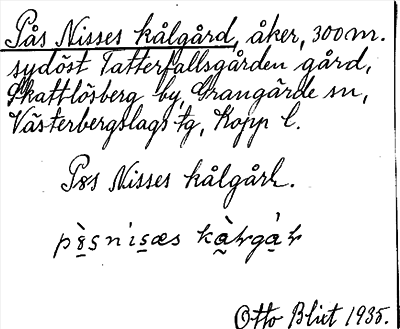 Pås Nisses kålgård, åker, 300 m.
sydöst Tatterfallsgården gård,
Skattlösberg by, Grangärde sn,
Västerbergslags tg, Kopp l.
Pos Nisses kålgåɽ.
Otto Blixt 1935.